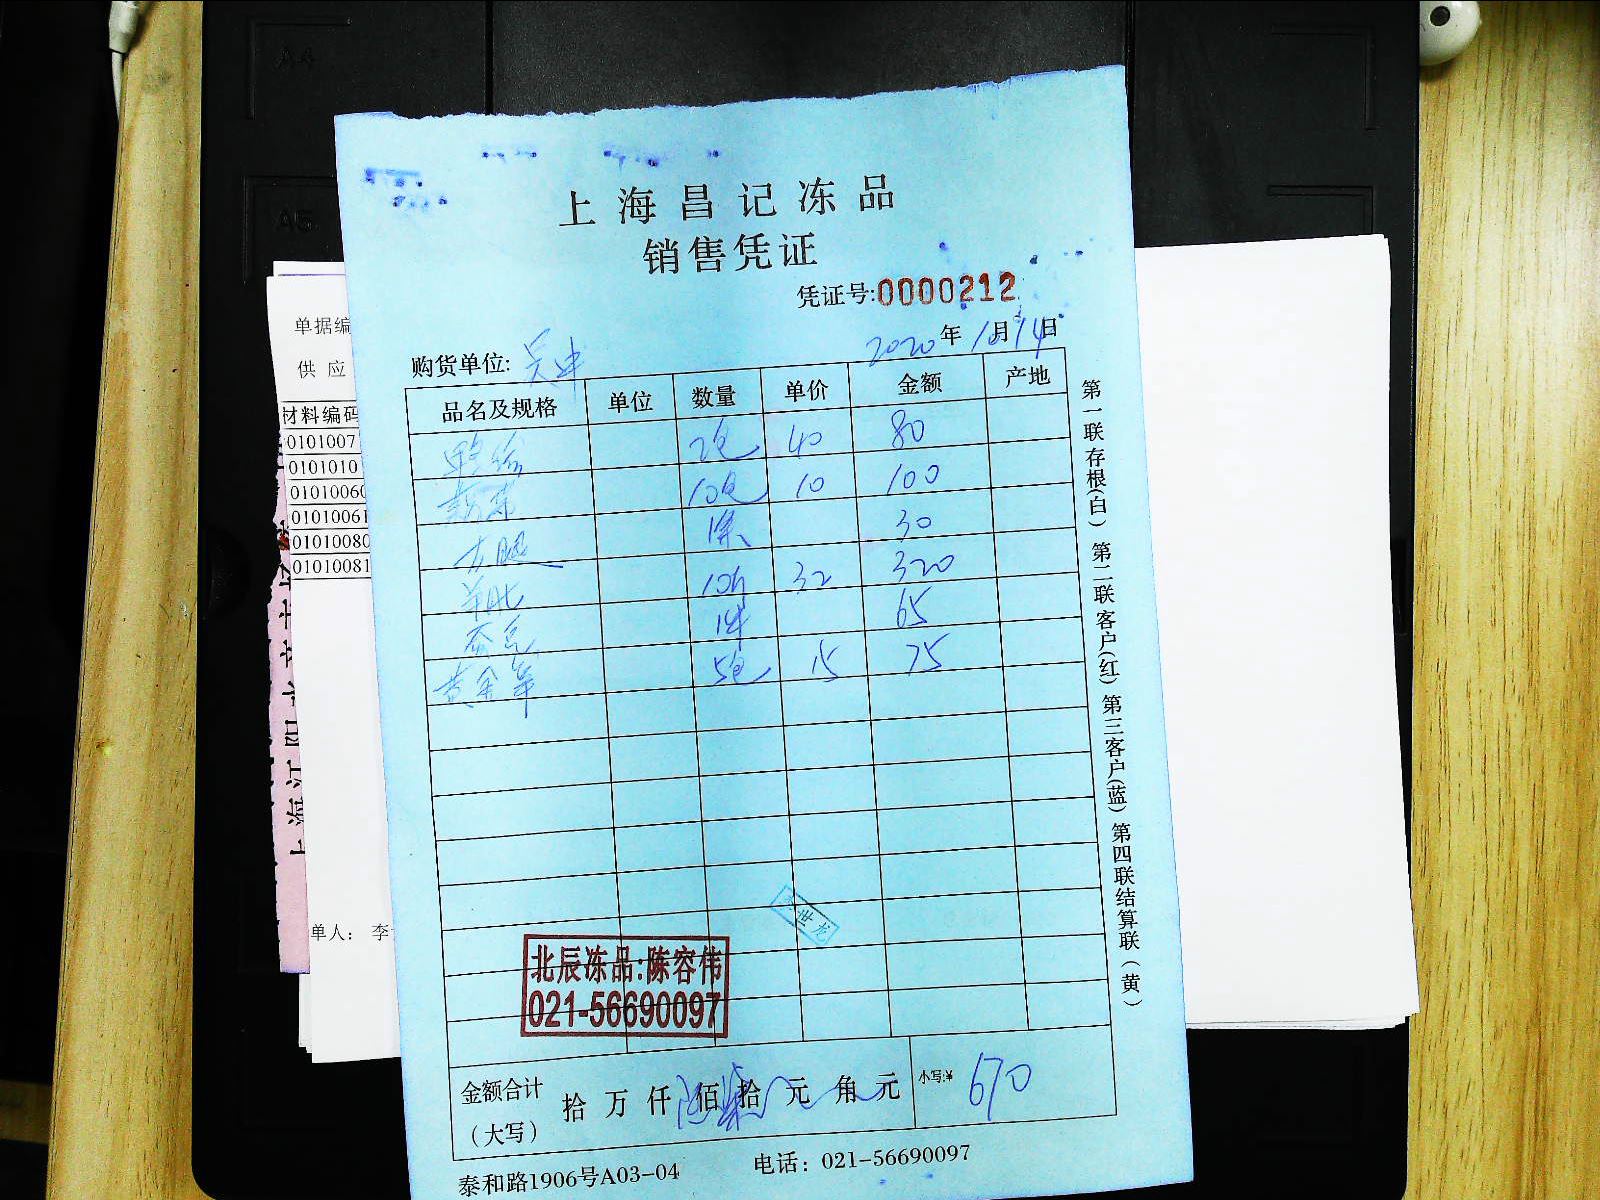 上海昌记冻品
销售凭证
凭证号:0000212
2020年10月14日
购货单位:
品名及规格 单位 数量 单价 金额 产地
2包 40 80
10包 10 100
方腿 1条 30
10斤 32 320
1件 65
黄金 5包 15 75
北辰冻品:陈容伟
021-56690097
世龙
金额合计
(大写)
拾 万 仟 佰 拾 元 角 元
小写:¥ 670
泰和路1906号A03-04 电话: 021-56690097
第一联存根(白) 第二联客户(红) 第三客户(蓝) 第四联结算联(黄)
单据编
供 应
材料编码
0101007
0101010
01010060
01010061
01010080
01010081
单人: 李
上海江阳
A4
A5